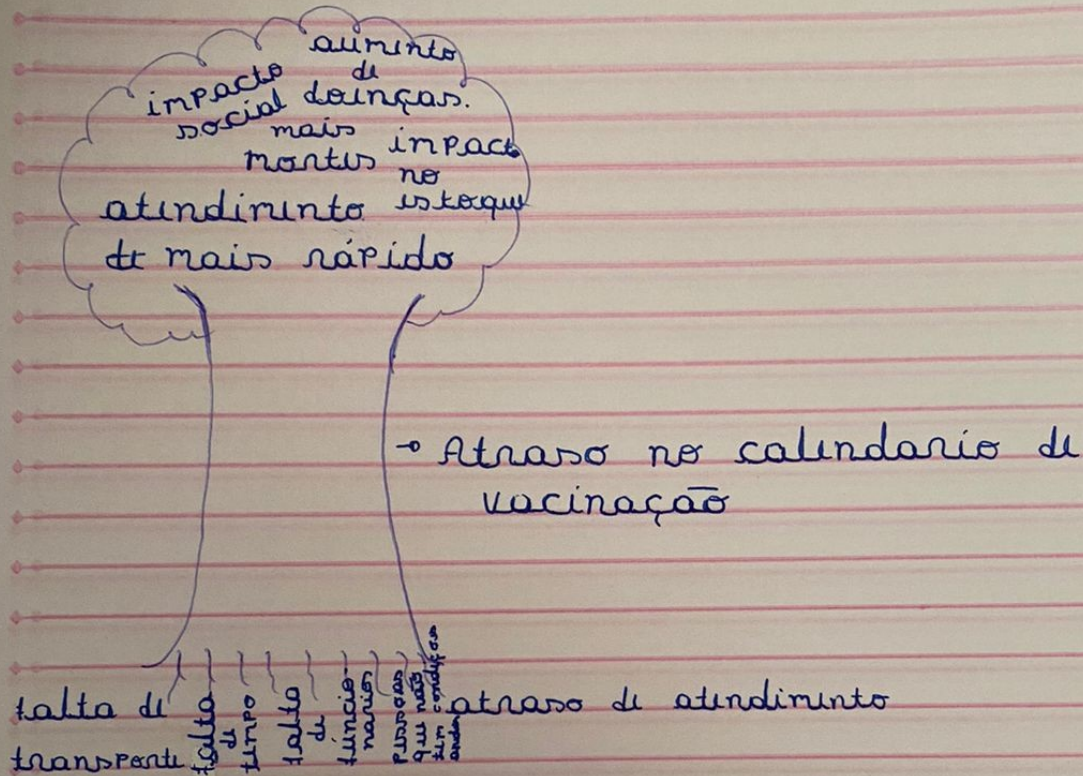 aumento
de
doenças.
impacto
social
mais
mortes
impacto
no
estoque
atendimento
de mais rápido
→ Atraso no calendario de
vacinação
falta de
transporte
falta
de
tempo
falta
de
funcio-
narios
pessoas
que não
tem condições
andar
atraso de atendimento